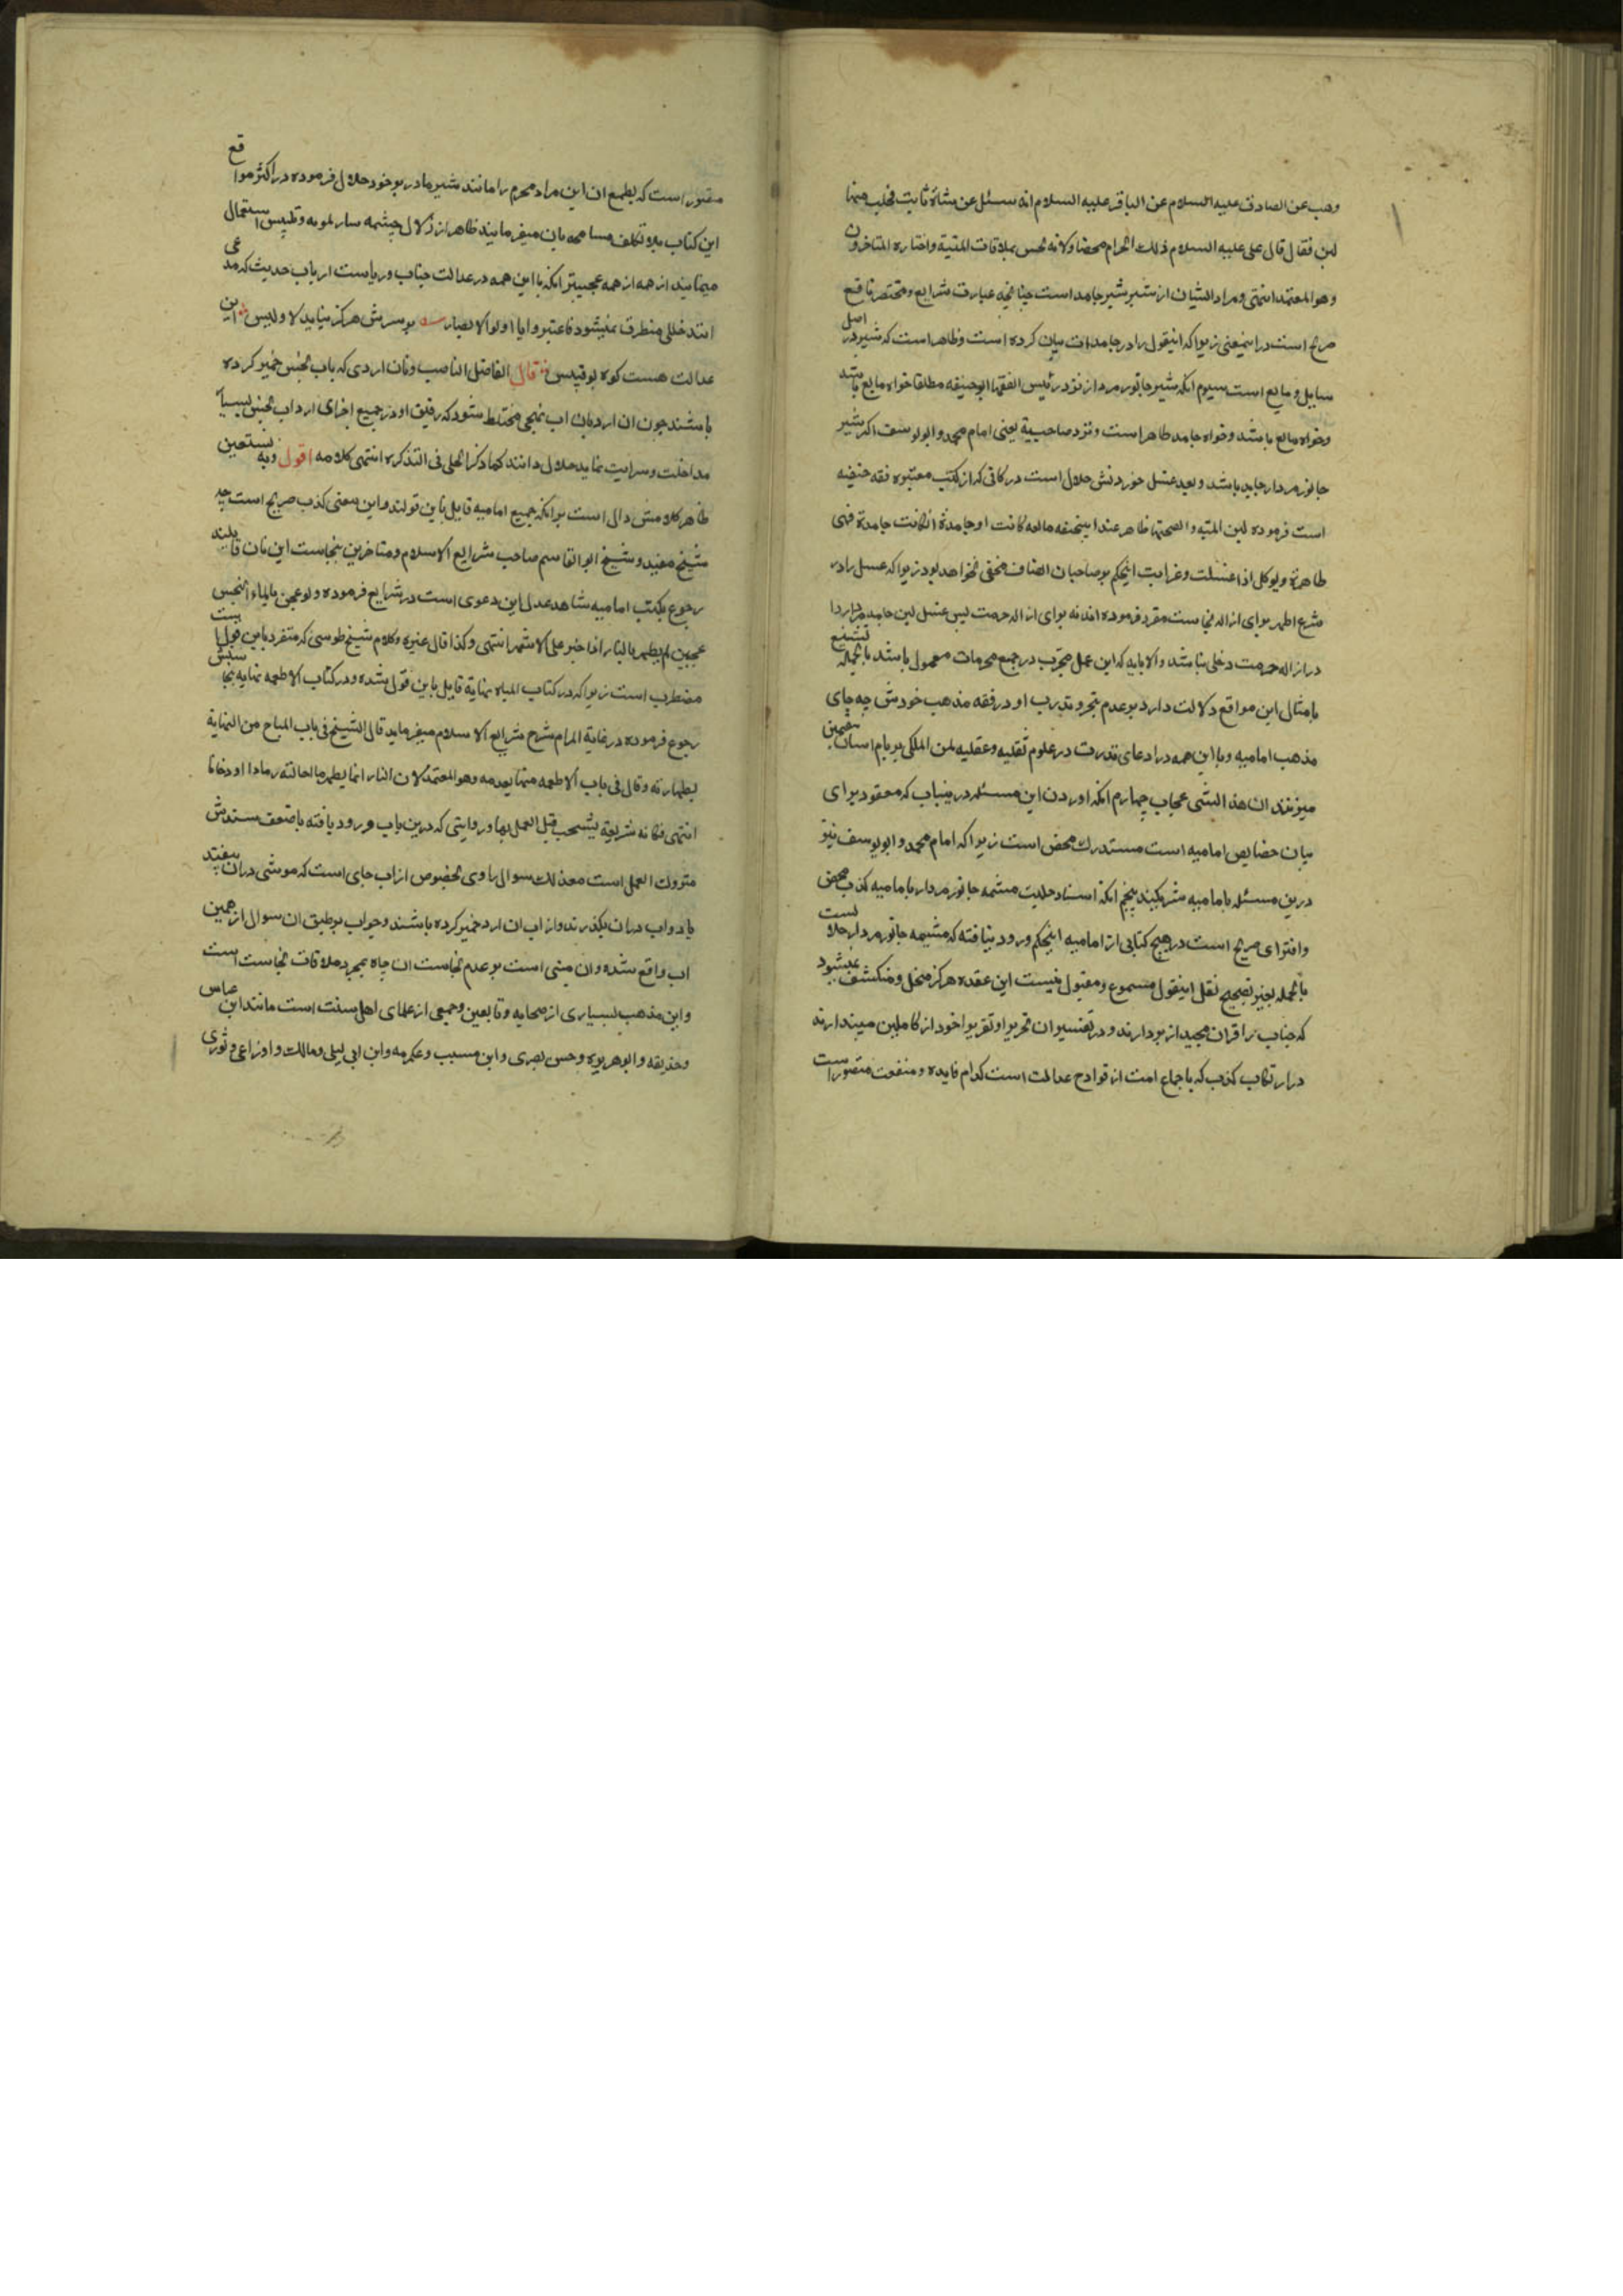 وهب عن الصادق علیه السلام عن الباقر علیه السلام انه سئل عن شاة ماتت فحلب منها
لبن فقال قال علی علیه السلام ذلك الحرام محضا ولانه نجس بملاقات المیتة واختاره المتاخرون
وهو المعتمد انتهی ومراد ایشان از شیر شیر جامد است چنانچه عبارت شرایع ومختصر نافع
صریح است در اینمعنی زیرا که اینقول را در جامدات بیان کرده است وظاهر است که شیر در اصل
سایل و مایع است سیوم انکه شیر جانور مردار نزد رئیس الفقها ابوحنیفه مطلقا خواه مایع باشد
وخواه مایع باشد وخواه جامد طاهر است ونزد صاحبیه یعنی امام محمد و ابو یوسف اکر شیر
جانور مردار جامد باشد و بعد غسل خوردنش حلال است در کافی که از کتب معتبره فقه حنفیه
است فرموده لبن المیته و انفحتها طاهر عند ابیحنیفه مایعه کانت او جامدة انکانت جامدة فهی
طاهرة ویوکل اذا غسلت وغرابت اینحکم بر صاحبان انصاف مخفی نخواهد بود زیرا که غسل را در
شرع اطهر برای ازاله نجاست مقرر فرموده اند نه برای ازاله حرمت پس غسل لبن جامد مردار را
در ازاله حرمت دخلی نباشد والا باید که این عمل مجرب در جمیع محرمات معمول باشد بالجمله تشنیع
بامثال این مواقع دلالت دارد بر عدم تبحر و تدرب او در فقه مذهب خودش چه جای
مذهب امامیه وبا این همه در ادعای تدرب در علوم نقلیه وعقلیه لمن الملکی بر بام اسمان هفتمین
میزنند ان هذا لشی عجاب چهارم انکه اوردن این مسئله در ینباب که معقود برای
بیان خصایص امامیه است مستدرك محض است زیرا که امام محمد و ابویوسف نیز
درین مسئله با امامیه شریکند پنجم انکه اسناد حلیت مشیمه جانور مردار با مامیه کذب محض
وافترای صریح است در هیچ کتابی از امامیه اینحکم ورود نیافته که مشیمه جانور مردار حلا لست
بالجمله بغیر تصحیح نقل اینقول مسموع ومقبول نیست این عقده هرکز منحل ومنکشف نمیشود
که جناب را قران مجید از بر دارند و در تفسیر ان تحریرا وتقریرا خود از کاملین میپندارند
در ارتکاب کذب که باجماع امت از قوادح عدالت است کدام فایده ومنفعت متصور است
متصور است که بطمع ان این مراد محرم را مانند شیر مادر بر خود حلال فرموده در اکثر مواقع
این کتاب بلا تکلف مسامحه بان میفرمایند ظاهرا از زلال چشمه سار تمویه وتلبیس استعمال
مینمایند از همه از همه عجیبتر انکه با این همه در عدالت جناب وریاست ارباب حدیث که مدعی
انند خللی متطرق نمیشود فاعتبروا یا اولو الابصار بر سرش هرکز نیاید لا ولیس این
عدالت هست کوه بوقبیس قال الفاضل الناصب ونان اردی که باب نجس خمیر کرده
باشند چون ان ارد بان اب نهجی مختلط شود که رقیق او در جمیع اجزای ارد اب نجس بسیار
مداخلت وسرایت نماید حلال دانند کما ذکرا لحلی فی التذکره انتهی کلامه اقول وبه نستعین
ظاهر کلامش دال است بر انکه جمیع امامیه قایل باین قولند واین معنی کذب صریح است چه
شیخ مفید وشیخ ابو القاسم صاحب شرایع الاسلام ومتاخرین بنجاست این نان قایلند
رجوع بکتب امامیه شاهد عدل این دعوی است در شرایع فرموده ولو عجن بالماء النجس
عجین لم یطهر بالنار اذا خبز علی الاشهر انتهی وکذا قال غیره وکلام شیخ طوسی که متفرد باین قول است
مضطرب است زیرا که در کتاب المیاه نهایة قایل باین قول شده و در کتاب الاطعمه نهایه بنجاستش
رجوع فرموده در غایة المرام شرح شرایع الاسلام میفرماید قال الشیخ فی باب المیاه من النهایة
بطهارته وقال فی باب الاطعمه منها بعدمه وهو المعتمد لان النار انما یطهر ما احالته رمادا او دخانا
انتهی فکانه شریعة یستحب قبل العمل بها وروایتی که درین باب ورود یافته با ضعف سندش
متروك العمل است معذلك سوال راوی بخصوص از اب چاهی است که موشی در ان بیفتد
یا دواب در ان بکذرند واز اب ان ارد خمیر کرده باشند وجواب بر طبق ان سوال از همین
اب واقع شده وان مبنی است بر عدم نجاست ان چاه بمجرد ملاقات نجاست است
واین مذهب بسیاری از صحابه وتابعین وجمعی از علمای اهل سنت است مانند ابن عباس
وحذیفه وابوهریره وحسن بصری وابن مسیب وعکرمه وابن ابی لیلی ومالك واوزاعی وثوری